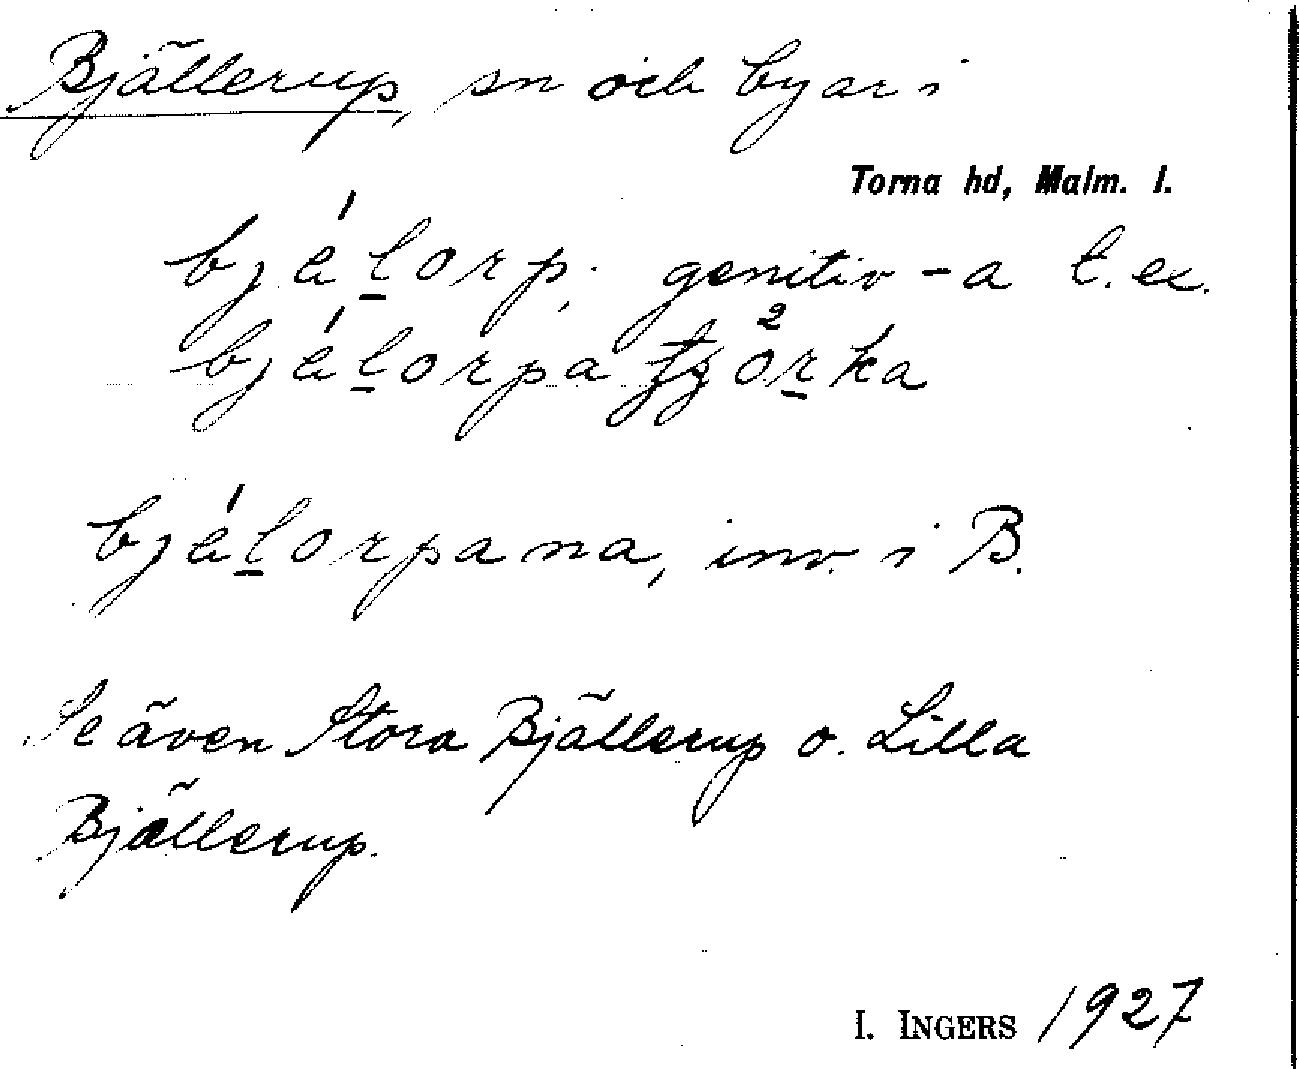 Bjällerup, sn och byar i
Torna hd, Malm. l.
bjälorp; genitiv -a t. ex.
bjälorpa
bjälorpana, inv. i B.
Se även Stora Bjällerup o. Lilla
Bjällerup.
I. INGERS 1927